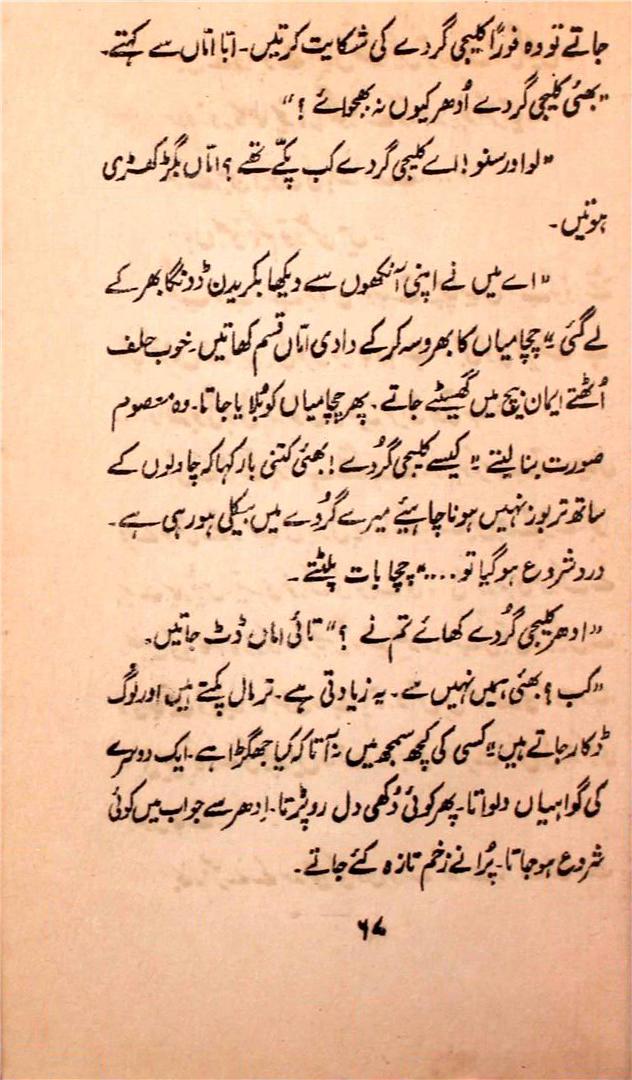 جاتے تو وہ فوراً کلیجی گردے کی شکایت کرتیں۔ ابّا امّاں سے کہتے۔
”بھئی کلیجی گردے اُدھر کیوں نہ بھجوائے؟“
”لو اور سنو! اے کلیجی گردے کب پکّے تھے؟ امّاں بگڑ کھڑی
ہوتیں۔
”اے میں نے اپنی آنکھوں سے دیکھا بکریدن ڈونگا بھر کے
لے گئی“ چچا میاں کا بھروسہ کر کے دادی امّاں قسم کھاتیں۔ خوب حلف
اُٹھتے ایمان بیچ میں گھسیٹے جاتے۔ پھر چچا میاں کو بُلایا جاتا۔ وہ معصوم
صورت بنا لیتے ”کیسے کلیجی گُردے! بھئی کتنی بار کہا کہ چاولوں کے
ساتھ تربوز نہیں ہونا چاہیئے میرے گُردے میں بیکلی ہو رہی ہے۔
درد شروع ہو گیا تو....“ چچا بات پلٹتے۔
”ادھر کلیجی گُردے کھائے تم نے؟“ تائی اماں ڈٹ جاتیں۔
”کب؟ بھئی ہمیں نہیں ملے۔ یہ زیادتی ہے۔ تر مال پکتے ہیں اور لوگ
ڈکار جاتے ہیں“ کسی کی کچھ سمجھ میں نہ آتا کہ کیا جھگڑا ہے۔ ایک دوسرے
کی گواہیاں دلواتا۔ پھر کوئی دُکھی دل رو پڑتا۔ اِدھر سے جواب میں کوئی
شروع ہو جاتا۔ پرُانے زخم تازہ کئے جاتے۔
۶۷